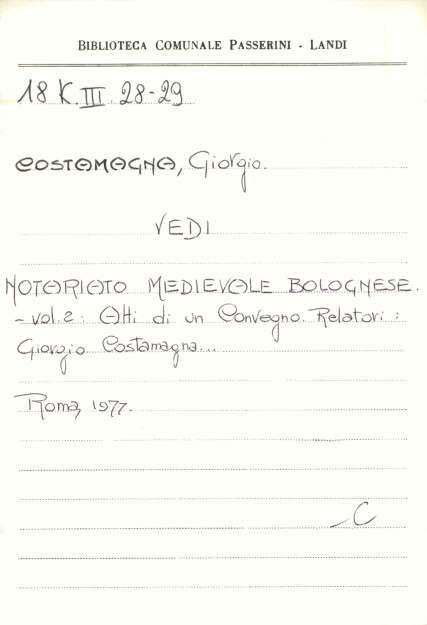 BIBLIOTECA COMUNALE PASSERINI - LANDI
18 K. III. 28-29
COSTAMAGNA, Giorgio.
VEDI
NOTARIATO MEDIEVALE BOLOGNESE.
- vol. 2: Atti di un Convegno. Relatori:
Giorgio Costamagna...
Roma, 1977.
C